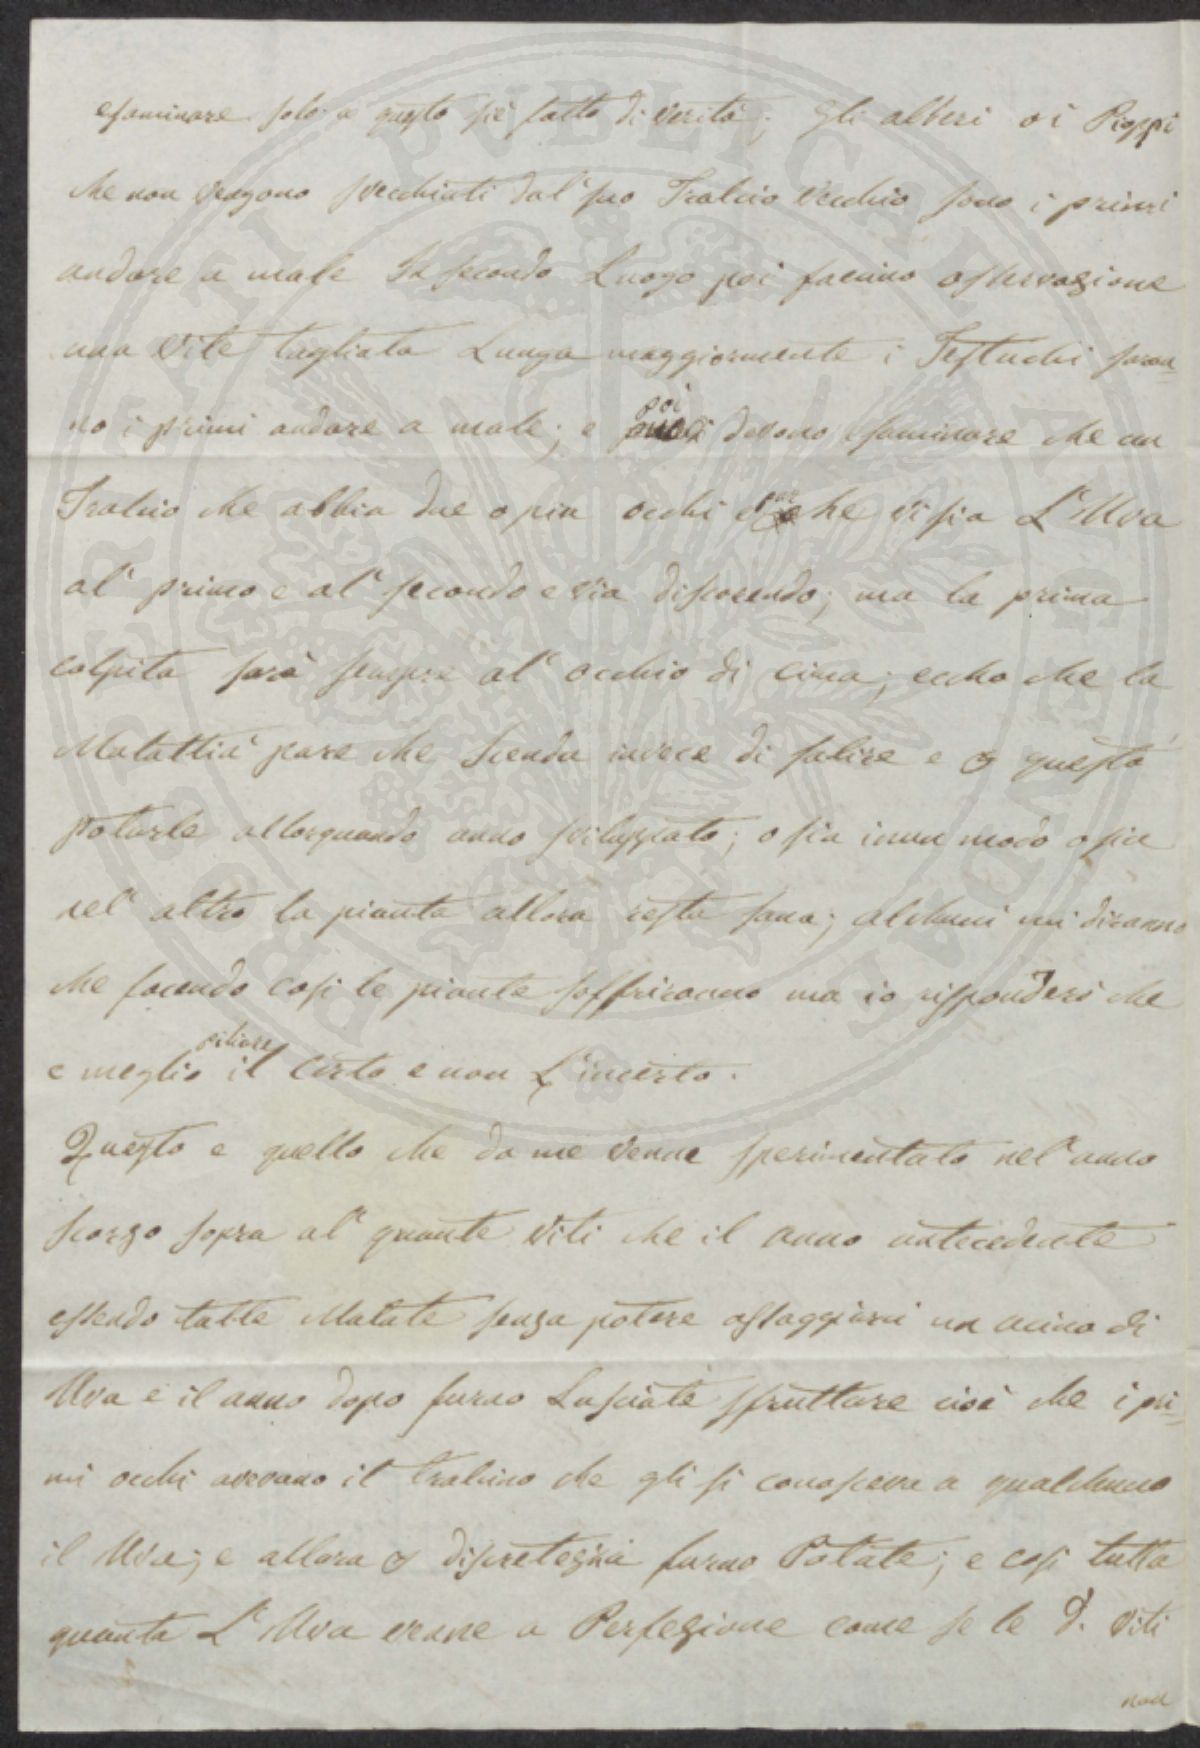 esaminare solo a questo sie fatto di verità; Gli alberi o i Pioppi
che non vengono svechiati dal suo Tralcio vechio sono i primi
andare a male In secondo Luogo poi facino osservazione
una Vite tagliata Lunga maggiormente i Testuchi saran=
no i primi andare a male; e poi devono esaminare che un
Tralcio che abbia due o piu ochi che vi sia L'Uva
al' primo e al' secondo e via discorendo; ma la prima
colpita sarà sempre al' ochio di cima; echo che la
Malattia pare che Scenda invece di salire e questo
potarle allorquando anno sviluppato; o sia in un modo o sia
nel' altro la pianta allora resta sana; alchuni mi diranno
che facendo cosi le piante soffriranno ma io risponderò che
e meglio piliare il certo e non L'incerto.
Questo e quello che da me venne sperimentato nel' anno
scorso sopra al' quante Viti che il anno antecedente
essendo tutte Malate senza potere assaggiarni un acino di
Uva e il anno dopo furno Lasciate sfruttare cioè che i pri=
mi ochi avevano il tralcino che gli si conosceva a qualchuno
il Uva; e allora furno Potate; e cosi tutta
quanta L'Uva venne a Perfezione come se le d. Viti
non
PUBLICA